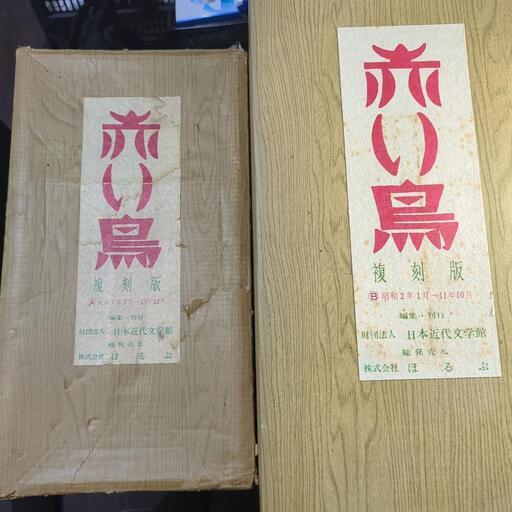 赤い鳥
複刻版
Ⓐ大正7年7月→15年12月
編集・刊行
財団法人 日本近代文学館
総発売元
株式会社 ほるぷ
赤い鳥
複刻版
Ⓑ昭和2年1月→11年10月
編集・刊行
財団法人 日本近代文学館
総発売元
株式会社 ほるぷ